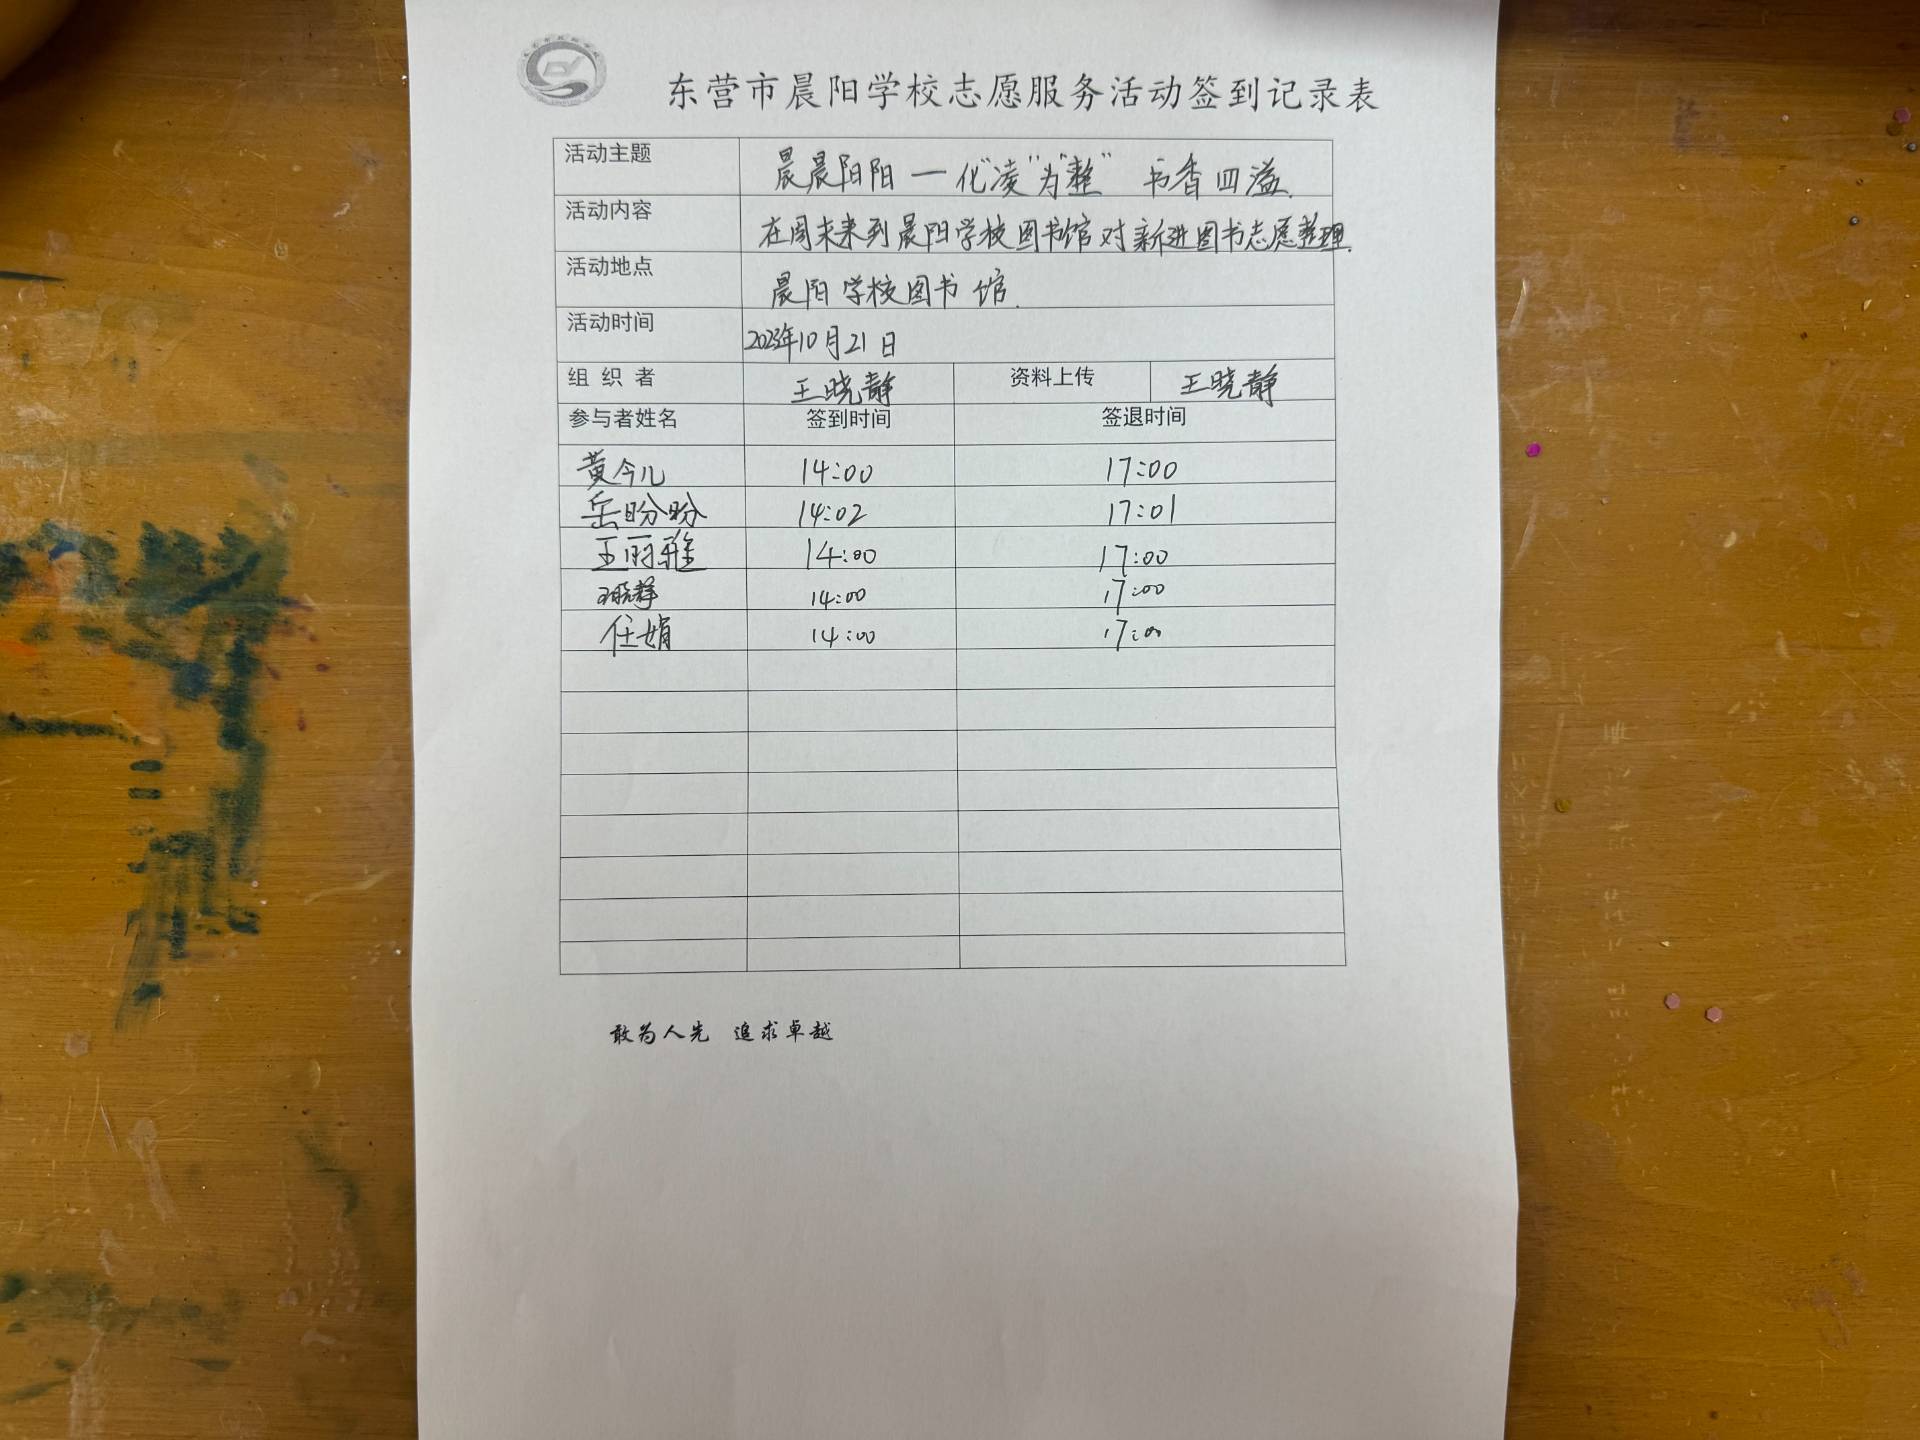 东营市晨阳学校志愿服务活动签到记录表
活动主题 晨晨阳阳一化"凌"为"整" 书香四溢.
活动内容 在周末来到晨阳学校图书馆对新进图书志愿整理.
活动地点 晨阳学校图书馆.
活动时间 2023年10月21日
组织者 王晓静 资料上传 王晓静
参与者姓名 签到时间 签退时间
黄今儿 14:00 17:00
岳盼盼 14:02 17:01
王丽雅 14:00 17:00
王晓静 14:00 17:00
任娟 14:00 17:00
敢为人先 追求卓越